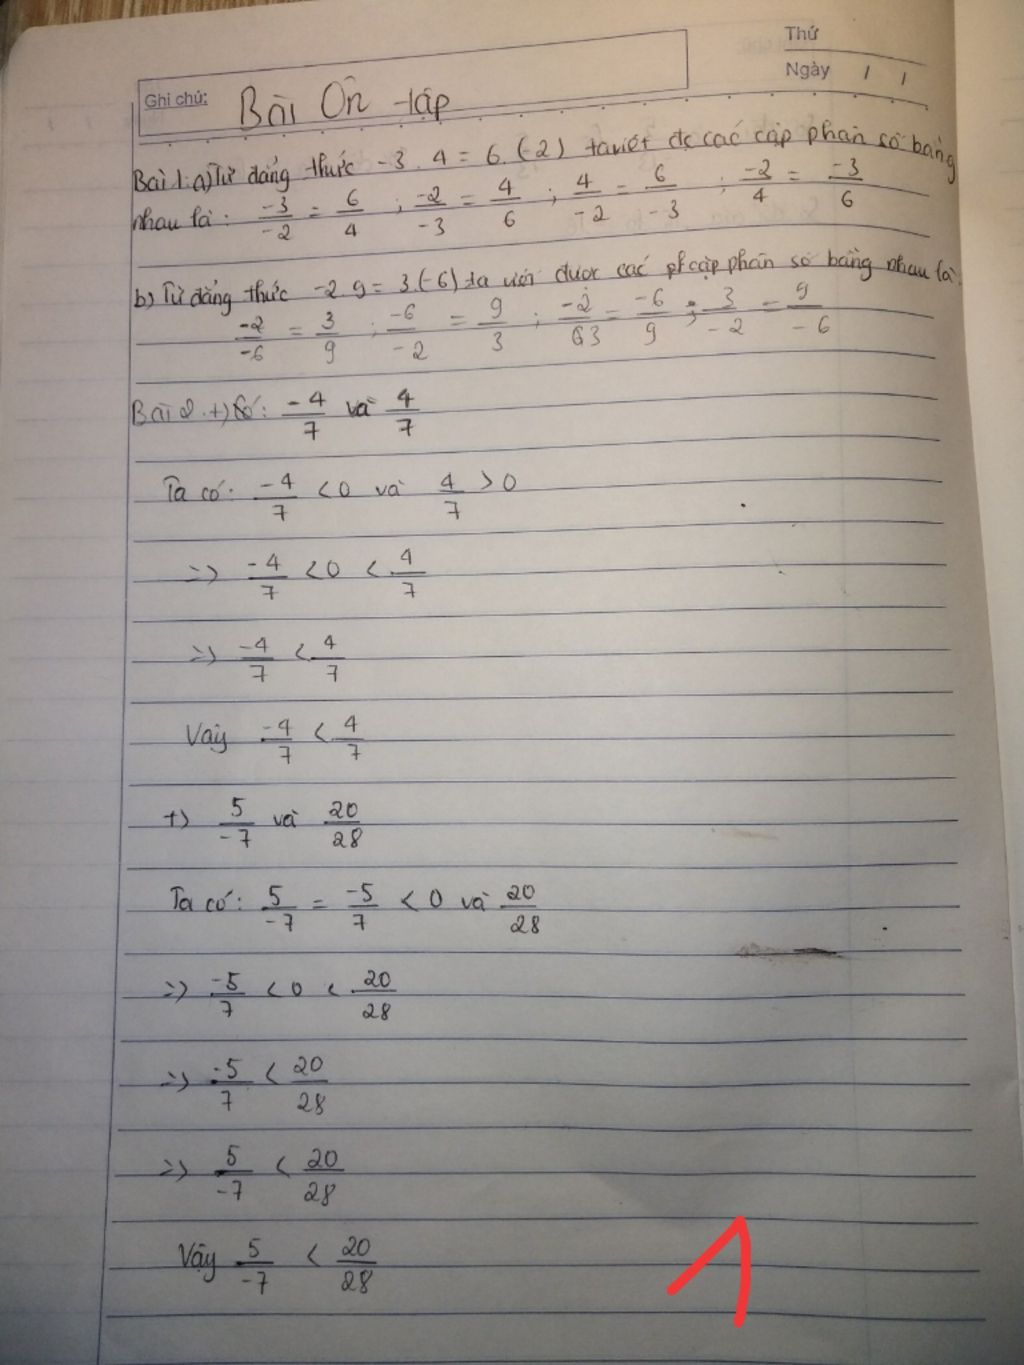 Thứ
Ngày / /
Ghi chú: Bài Ôn tập
Bài 1: a) Từ đẳng thức -3.4 = 6.(-2) ta viết đc các cặp phân số bằng
nhau là: -3/-2 = 6/4 ; -2/-3 = 4/6 ; 4/-2 = 6/-3 ; -2/4 = -3/6
b) Từ đẳng thức -2.9 = 3.(-6) ta viết được các cặp phân số bằng nhau là:
-2/-6 = 3/9 ; -6/-2 = 9/3 ; -2/3 = -6/9 ; 3/-2 = 9/-6
Bài 2. +) Số: -4/7 và 4/7
Ta có: -4/7 < 0 và 4/7 > 0
=> -4/7 < 0 < 4/7
=> -4/7 < 4/7
Vậy -4/7 < 4/7
+) 5/-7 và 20/28
Ta có: 5/-7 = -5/7 < 0 và 20/28
=> -5/7 < 0 < 20/28
=> -5/7 < 20/28
=> 5/-7 < 20/28
Vậy 5/-7 < 20/28
1